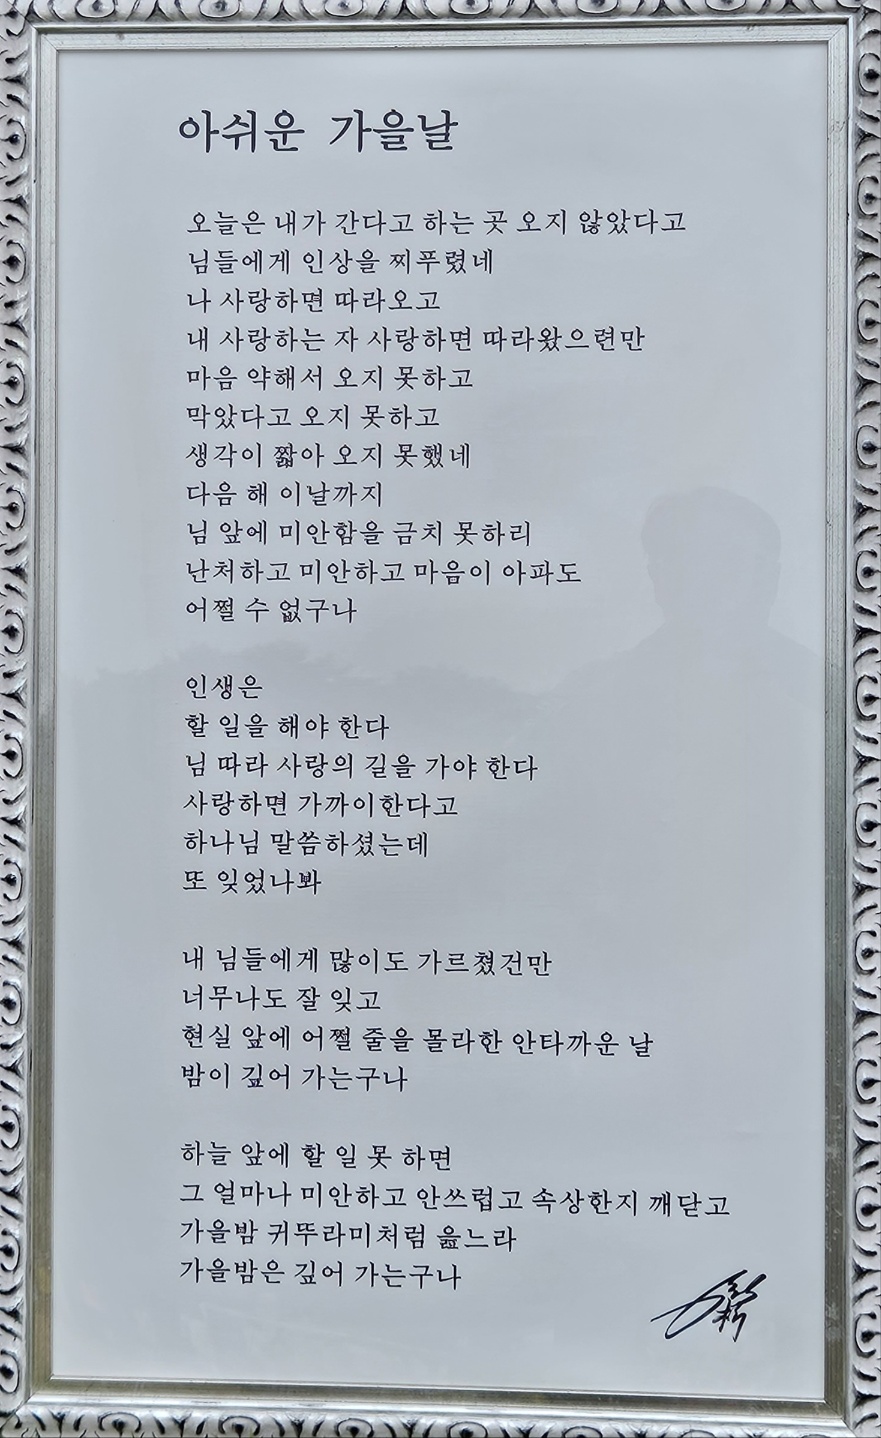 아쉬운 가을날
오늘은 내가 간다고 하는 곳 오지 않았다고
님들에게 인상을 찌푸렸네
나 사랑하면 따라오고
내 사랑하는 자 사랑하면 따라왔으련만
마음 약해서 오지 못하고
막았다고 오지 못하고
생각이 짧아 오지 못했네
다음 해 이날까지
님 앞에 미안함을 금치 못하리
난처하고 미안하고 마음이 아파도
어쩔 수 없구나
인생은
할 일을 해야 한다
님 따라 사랑의 길을 가야 한다
사랑하면 가까이한다고
하나님 말씀하셨는데
또 잊었나봐
내 님들에게 많이도 가르쳤건만
너무나도 잘 잊고
현실 앞에 어쩔 줄을 몰라한 안타까운 날
밤이 깊어 가는구나
하늘 앞에 할 일 못 하면
그 얼마나 미안하고 안쓰럽고 속상한지 깨닫고
가을밤 귀뚜라미처럼 읊느라
가을밤은 깊어 가는구나